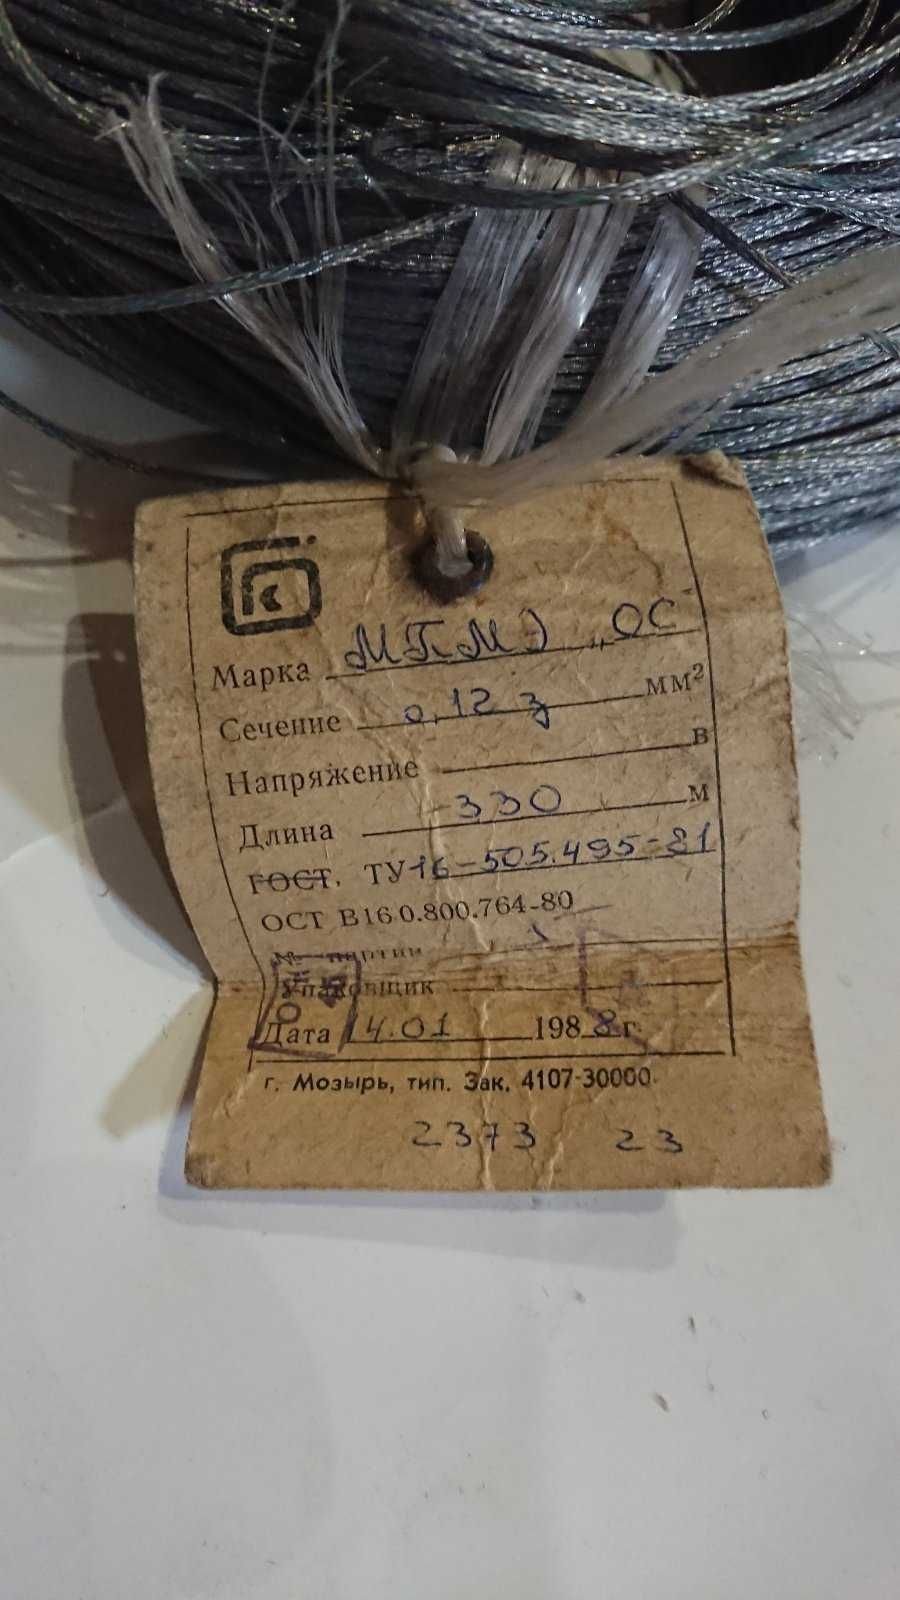 Марка МПМЭ „ОС"
Сечение 0,12 з мм²
Напряжение в
Длина 330 м
ГОСТ. ТУ 16-505.495-81
ОСТ В16 0.800.764-80
№ партии
Упаковщик
Дата 14.01 1988 г.
г. Мозырь, тип. Зак. 4107-30000
2373 23